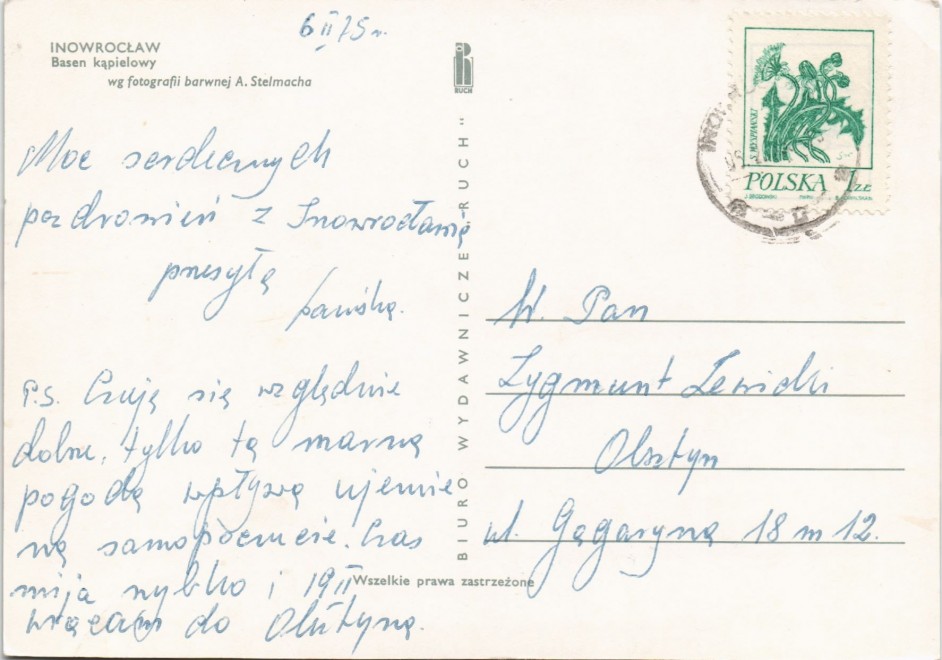 6 II 75 r.
INOWROCŁAW
Basen kąpielowy
wg fotografii barwnej A. Stelmacha
RUCH
S. WYSPIAŃSKI
POLSKA 1 ZŁ
Moc serdecznych
pozdrowień z Inowrocławia
przesyła
P.S. Czuję się względnie
dobrze, tylko ta marna
pogoda wpływa ujemnie
na samopoczucie. Czas
mija szybko i 19 II
wracam do Olsztyna.
BIURO WYDAWNICZE „RUCH"
W. Pan
Zygmunt Lewicki
Olsztyn
ul. Gagaryna 18 m 12.
Wszelkie prawa zastrzeżone